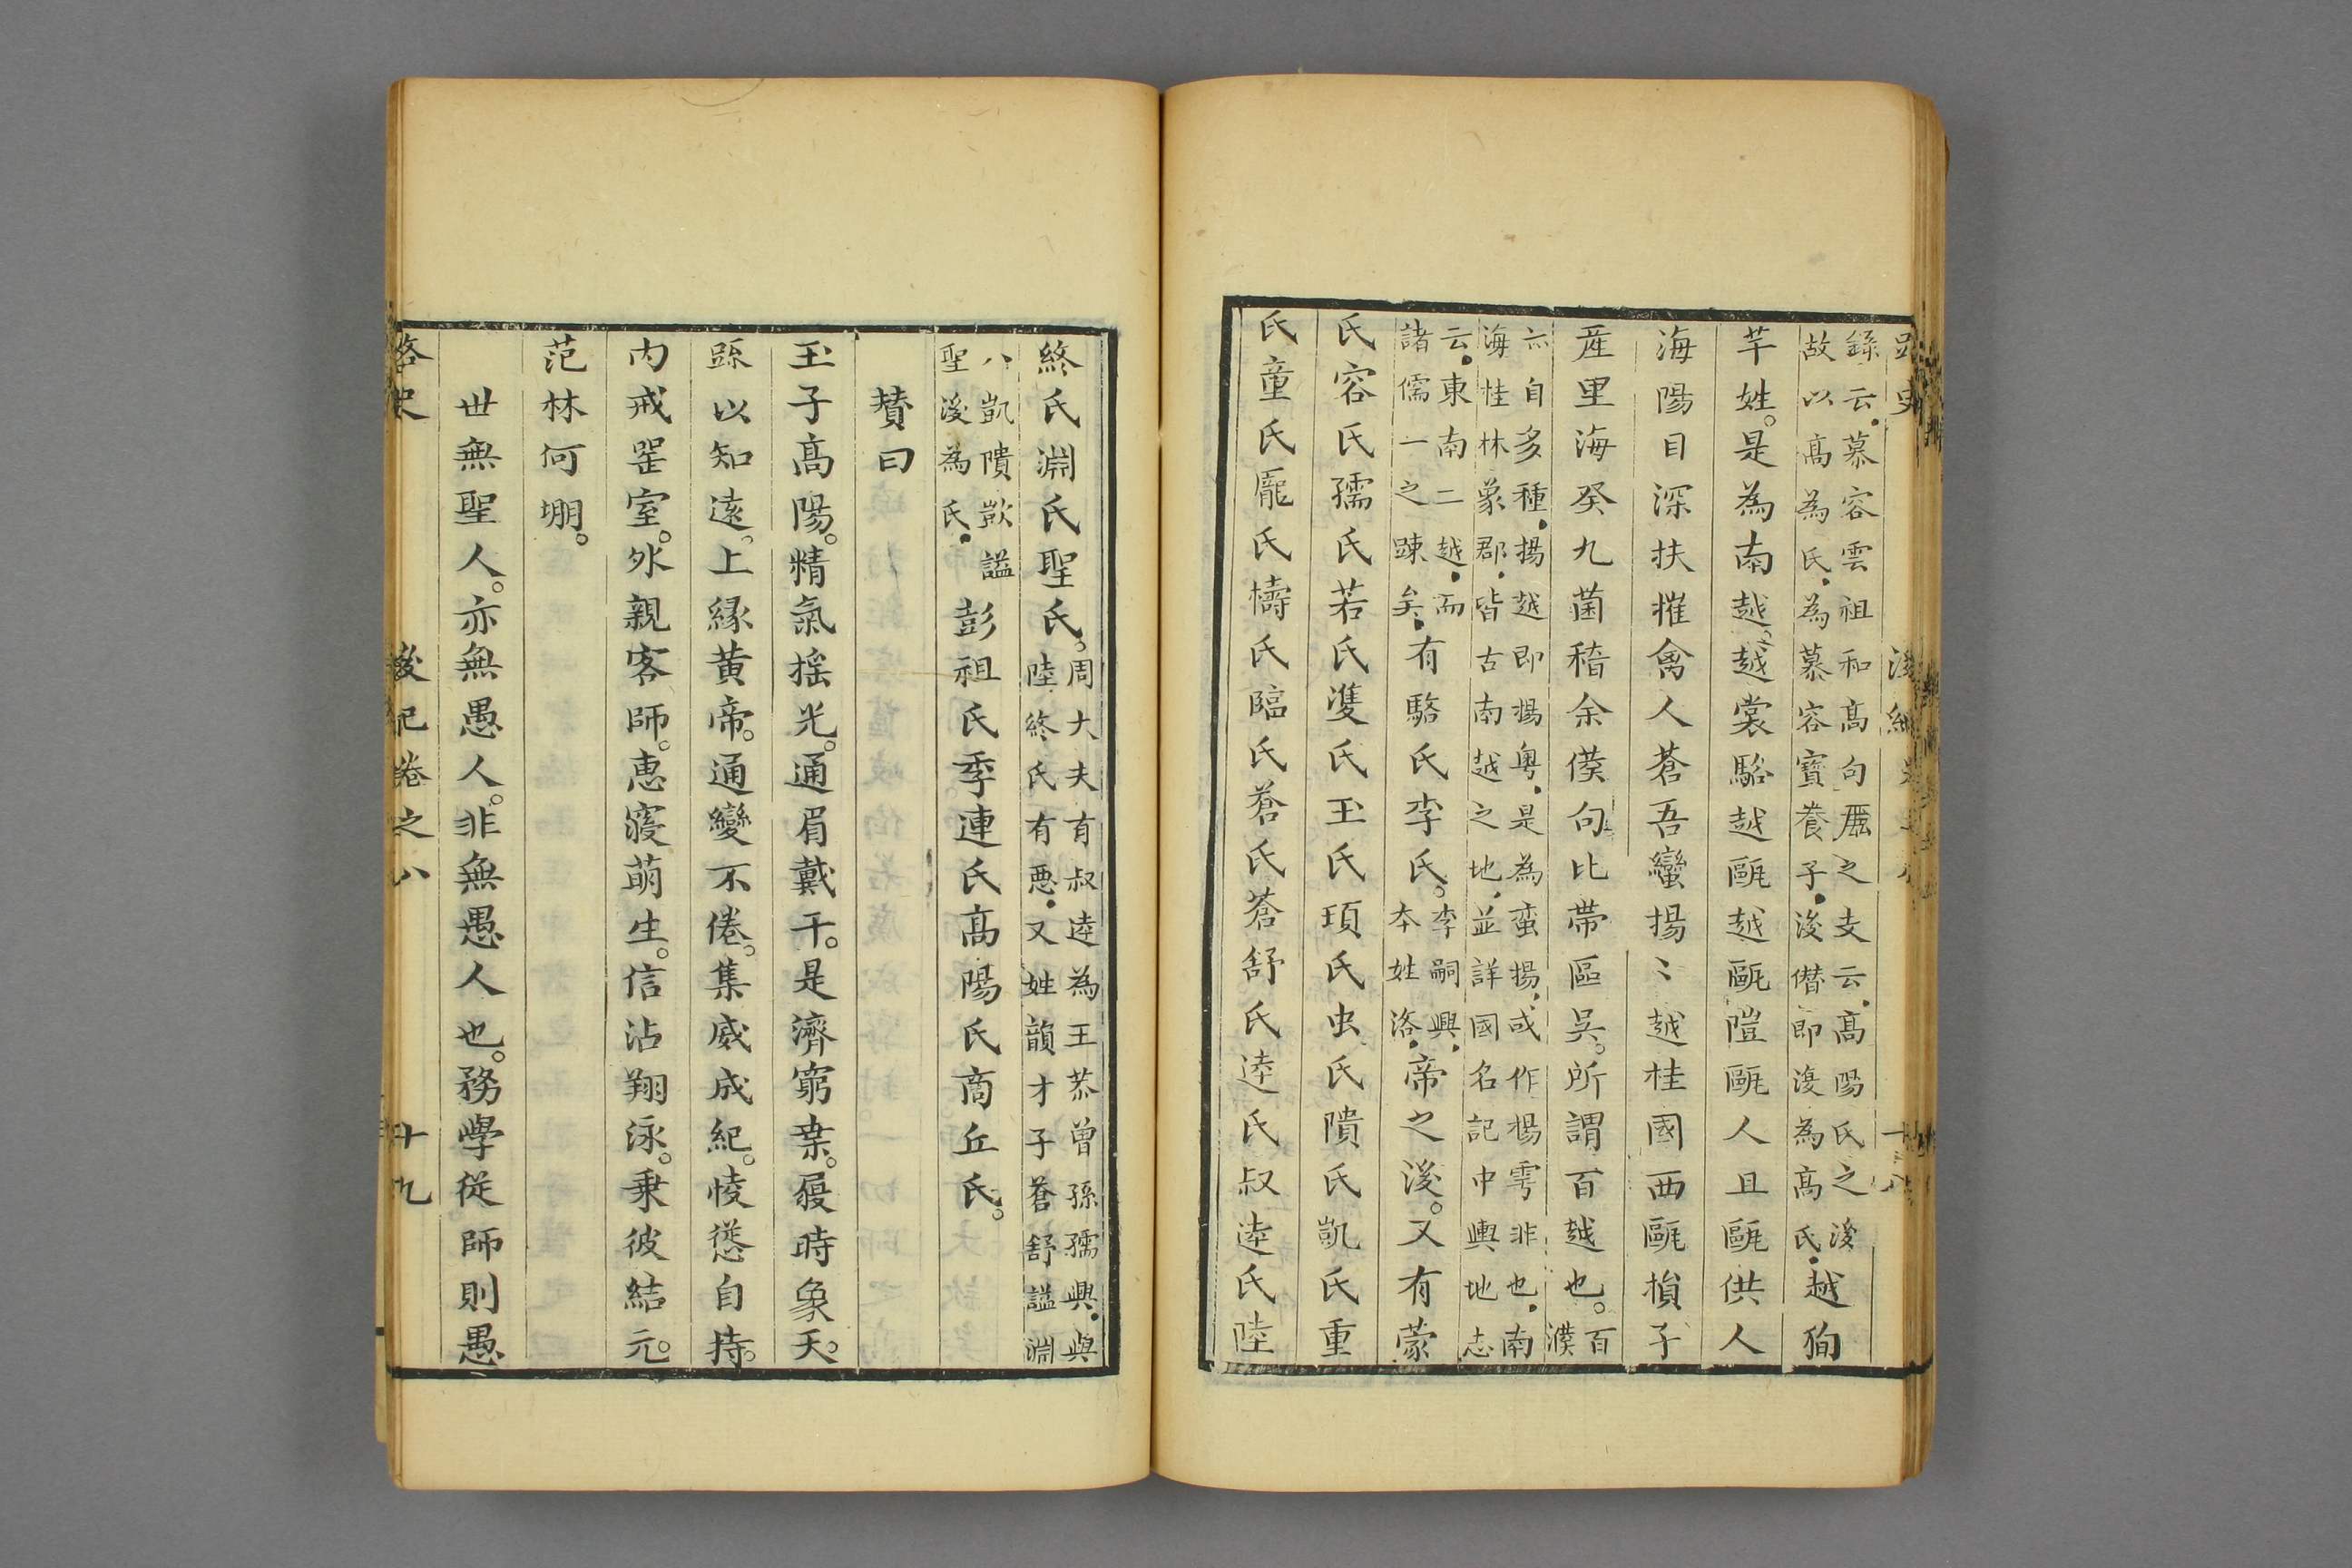 錄云慕容雲祖和高句驪之支云高陽氏之後
故以高為氏為慕容寶養子後僭即復為高氏越狗
芊姓是為南越越裳駱越甌越甌隑甌人且甌供人
海陽目深扶摧禽人蒼吾蠻揚〻越桂國西甌損子
產里海癸九菌稽余僕句比帶區吳所謂百越也百濮
亦自多種揚越即揚粵是為蛮揚或作楊雩非也南
海桂林象郡皆古南越之地並詳國名記中輿地志
云東南二越而
諸儒一之踈矣有駱氏李氏李嗣興本姓洛帝之後又有蒙
氏容氏孺氏若氏濩氏玉氏頊氏虫氏隤氏凱氏重
氏童氏厖氏檮氏臨氏蒼氏蒼舒氏逵氏叔逵氏陸
終氏淵氏聖氏周大夫有叔逵為王恭曾孫孺興與
陸終氏有惡又姓韻才子蒼舒謚淵
八凱隤敳謚
聖後為氏彭祖氏季連氏高陽氏商丘氏
贊曰
玉子高陽精氣搖光通眉戴干是濟窮桒履時象天
踈以知遠上緣黃帝通變不倦集威成紀悽慫自持
內戒罜室外親客師惠寖萌生信沾翔泳乗彼結元
范林何堋
世無聖人亦無愚人非無愚人也務學從師則愚
路史
後紀卷之八
十九